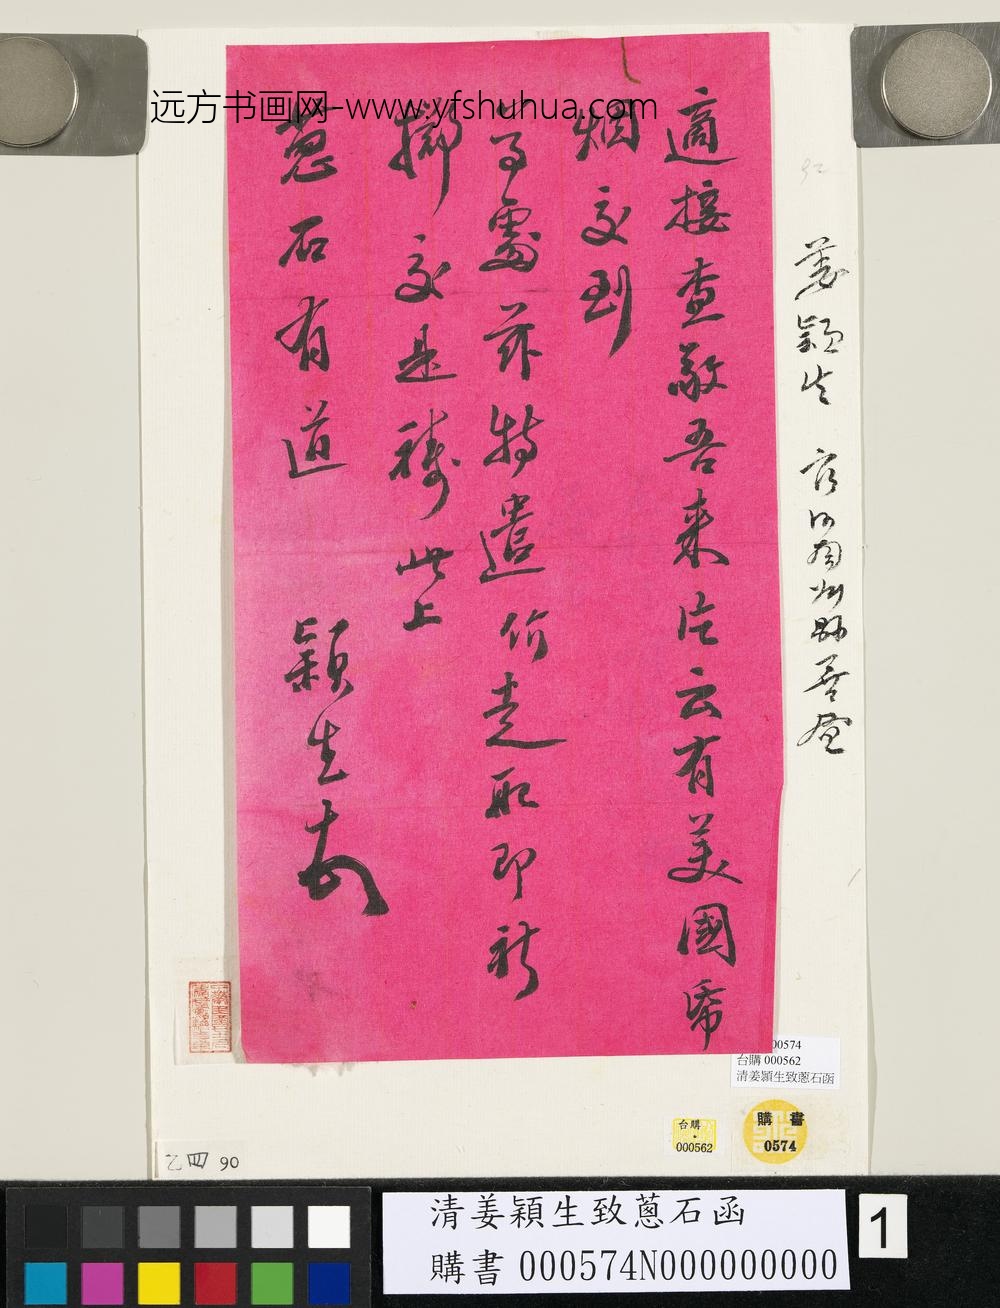 远方书画网-www.yfshuhua.com
適接查敬吾來片云有美國帋
烟交到
尊處茲特遣价走取即祈
擲交是禱此上
蔥石有道
穎生頓
姜穎生
00574
台購 000562
清姜穎生致蔥石函
台購
000562
購書
0574
乙四 90
清姜穎生致蔥石函
購書000574N000000000
1